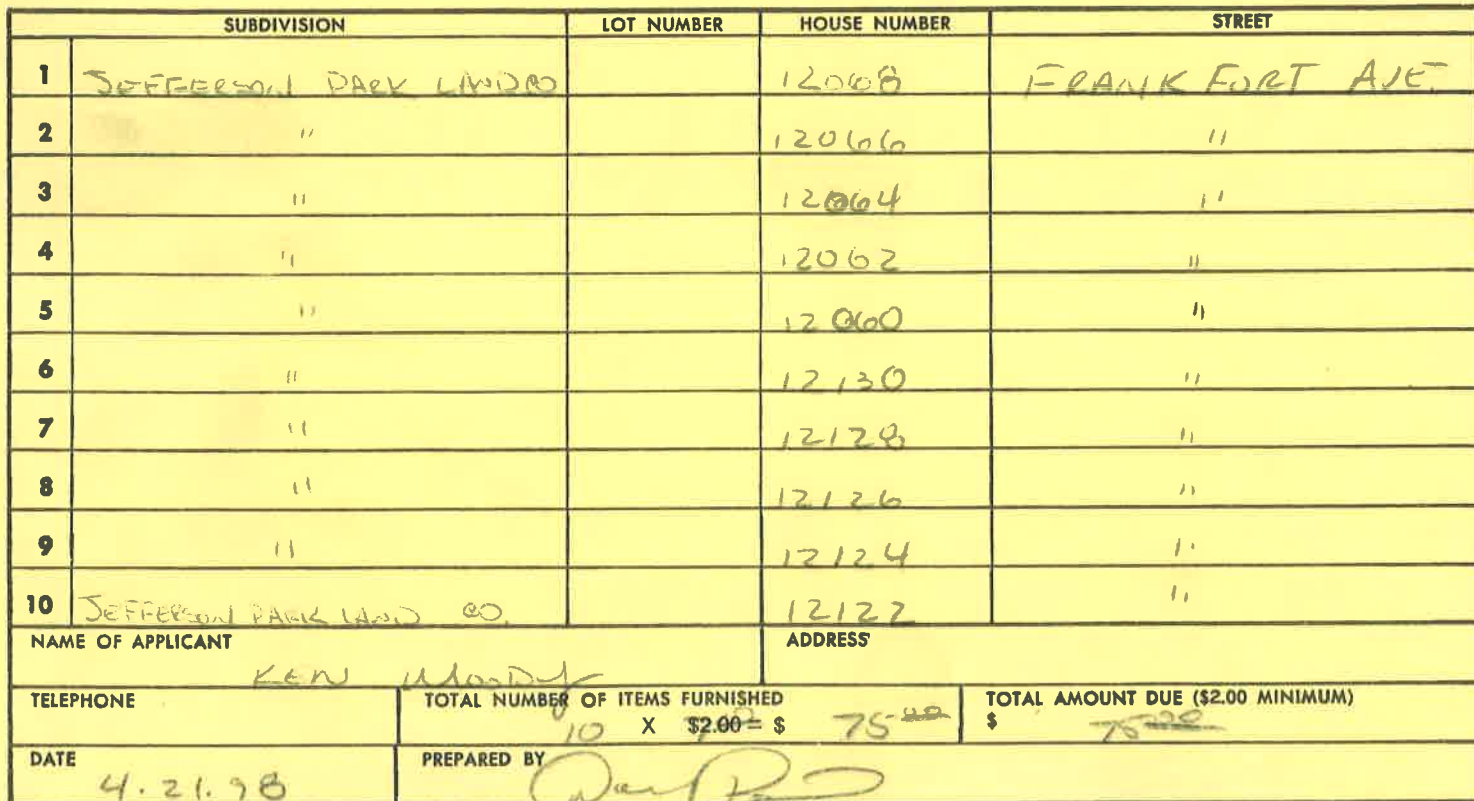 SUBDIVISION LOT NUMBER HOUSE NUMBER STREET
1 JEFFERSON PARK LAND CO 12068 FRANKFORT AVE.
2 " 12066 "
3 " 12064 "
4 " 12062 "
5 " 12060 "
6 " 12130 "
7 " 12128 "
8 " 12126 "
9 " 12124 "
10 JEFFERSON PARK LAND CO. 12122 "
NAME OF APPLICANT ADDRESS
KEN MOODY
TELEPHONE TOTAL NUMBER OF ITEMS FURNISHED TOTAL AMOUNT DUE ($2.00 MINIMUM)
10 X $2.00 = $ 75.00 $ 75.00
DATE PREPARED BY
4.21.98